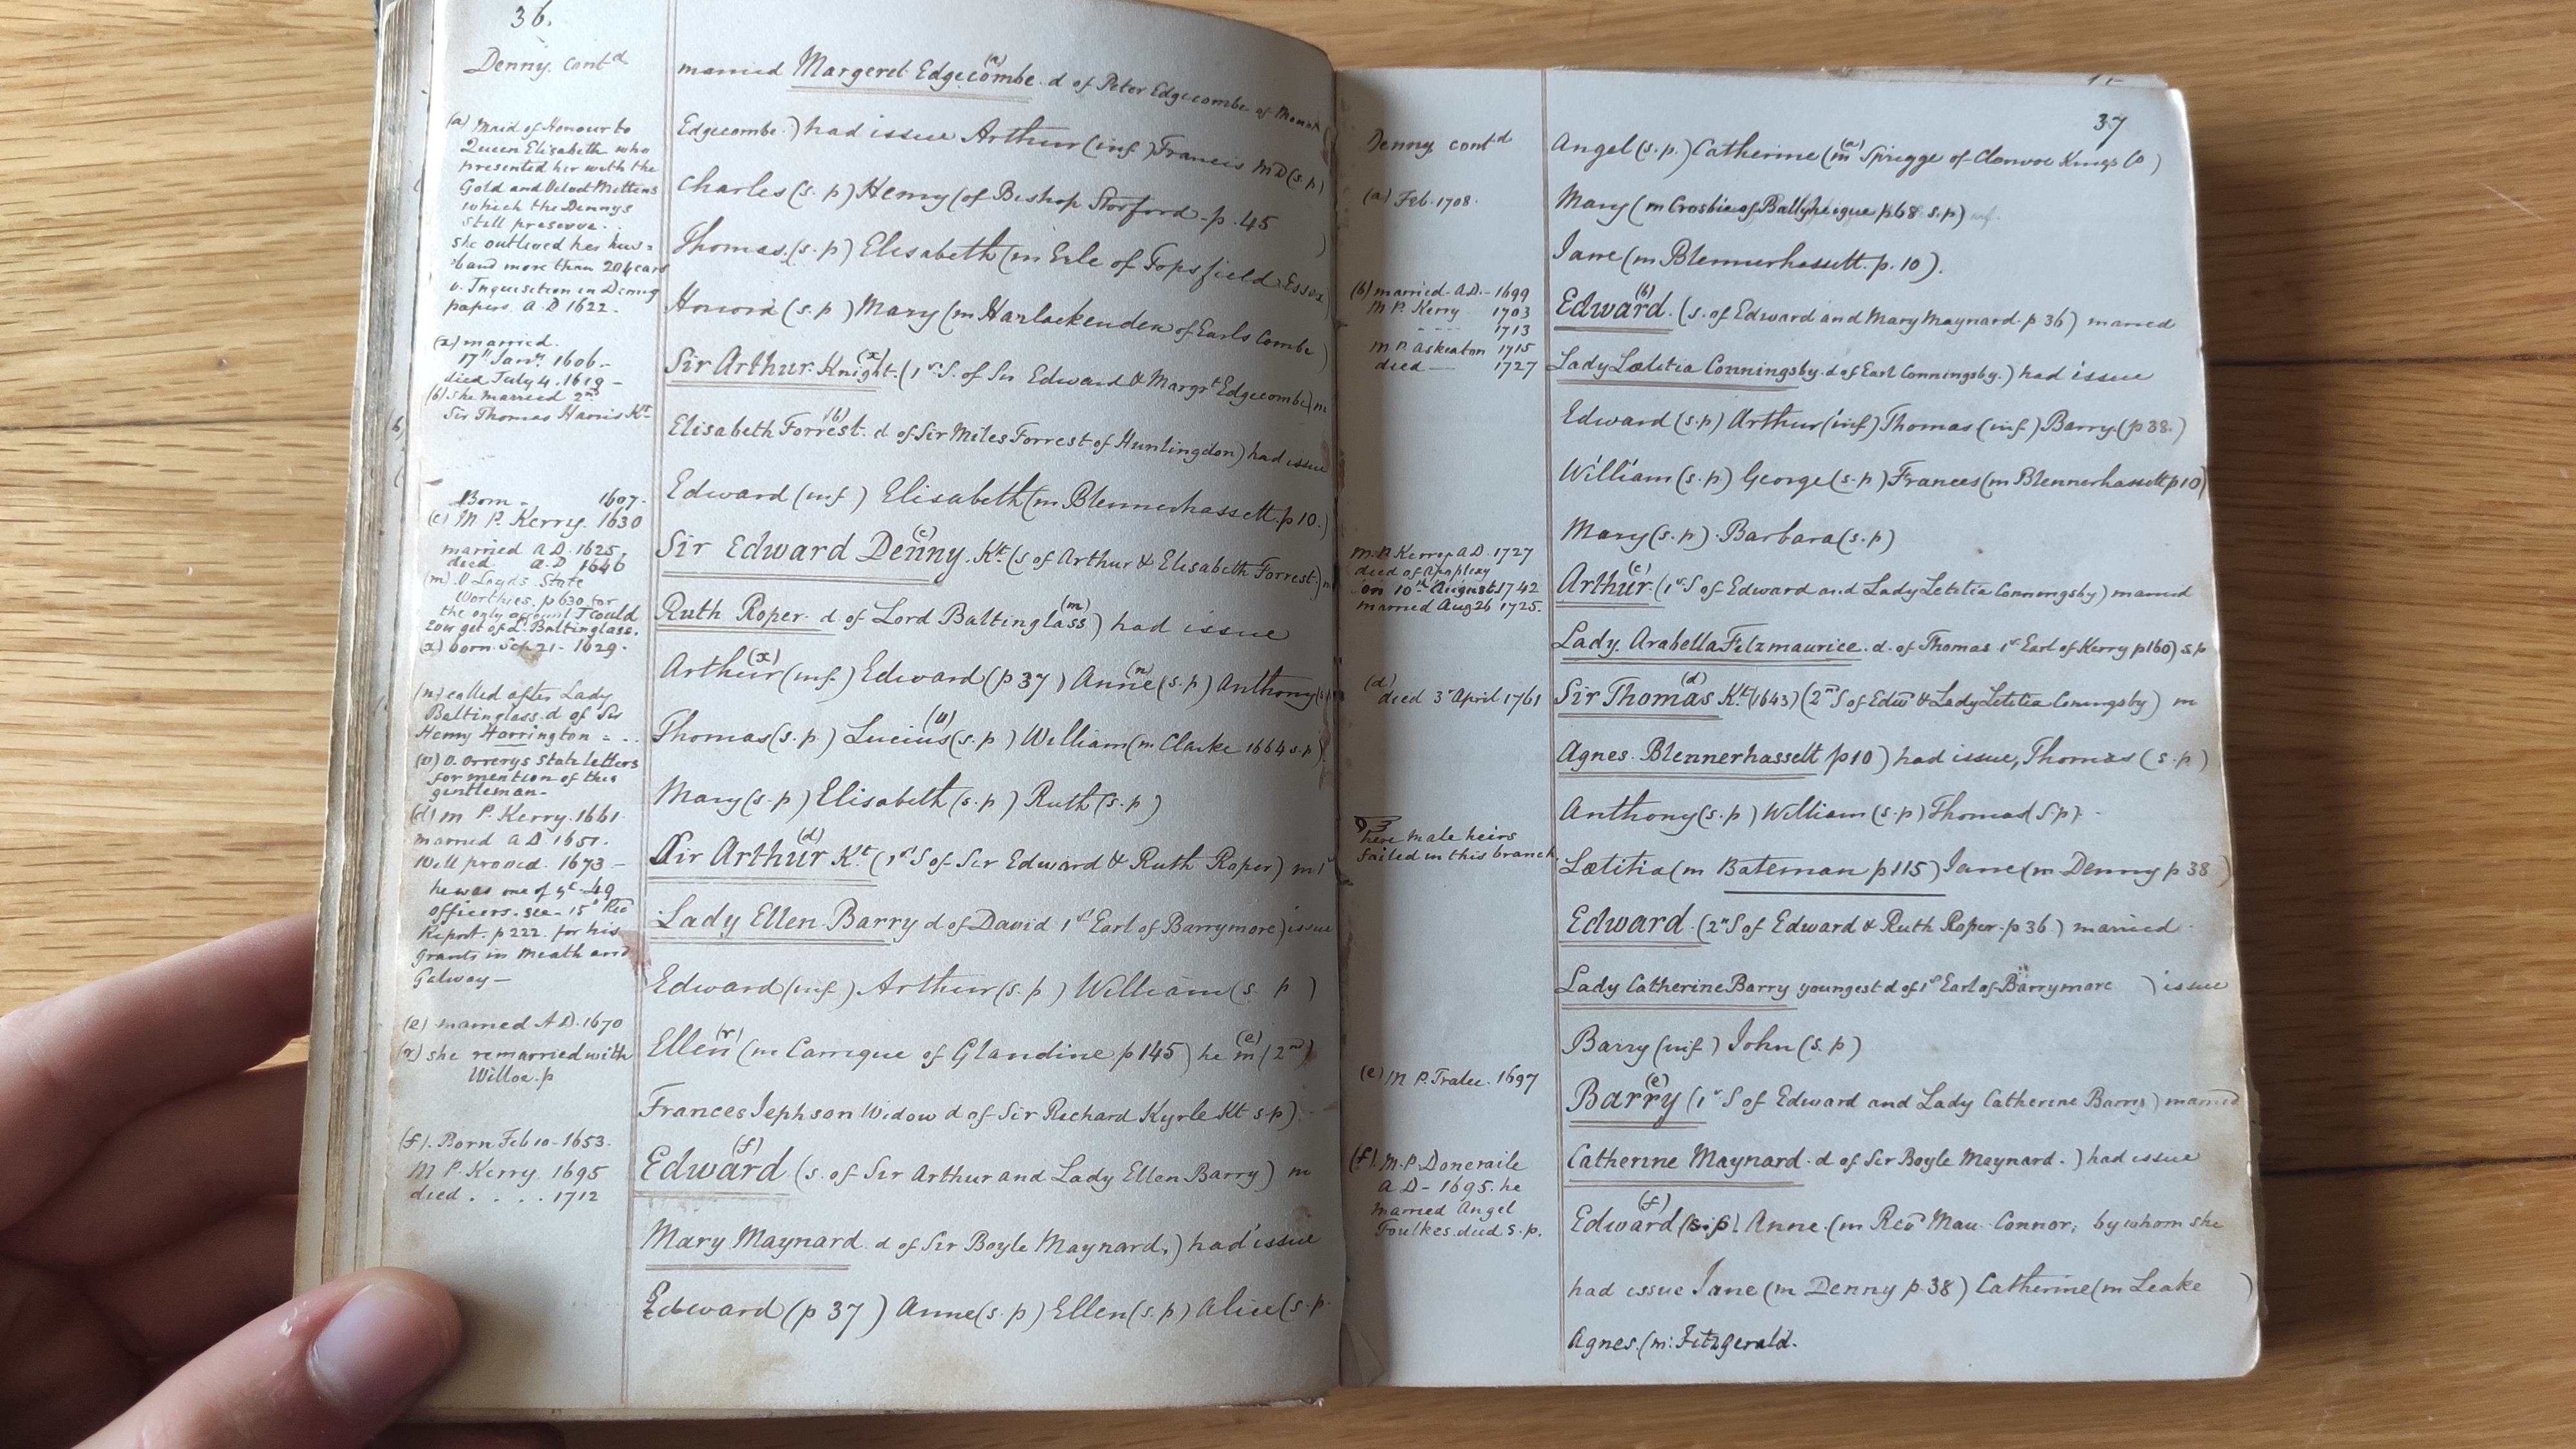 36.
Denny. contd
married Margeret Edgecombe (a) d of Peter Edgecombe of Mount
Edgecombe.) had issue Arthur (inf) Francis MD (s.p)
Charles (s. p) Henry (of Bishop Storford - p. 45
Thomas. (s. p) Elisabeth (m Erle of Topsfield Essex)
Honora (s. p) Mary (m Harlackenden of Earls Combe)
Sir Arthur Knight. (x) (1st S. of Sir Edward & Margt Edgecombe) m
Elisabeth Forrest. (b) d of Sir Miles Forrest of Huntingdon) had issue
Edward (inf) Elisabeth (m Blennerhassett. p 10.)
Sir Edward Denny. (c) Kt. (s of Arthur & Elisabeth Forrest.) m
Ruth Roper d. of Lord Baltinglass (m) ) had issue
Arthur (x) (inf.) Edward (p 37) Anne (n) (s. p) Anthony (s
Thomas (s. p) Lucius (v) (s. p) William (m Clarke 1664 s. p)
Mary (s. p) Elisabeth (s. p) Ruth (s. p)
Sir Arthur (d) Kt (1st S of Sir Edward & Ruth Roper) m 1
Lady Ellen Barry d of David 1st Earl of Barrymore) issue
Edward (inf.) Arthur (s. p) William (s. p)
Ellen (r) (m Carrique of Glandine p 145) he (e) m (2nd)
Frances Jephson Widow d of Sir Richard Kyrle Kt s. p).
Edward (f) (s. of Sir Arthur and Lady Ellen Barry) m
Mary Maynard d of Sir Boyle Maynard.) had issue
Edward (p 37) Anne (s. p) Ellen (s. p) Alice (s. p.
(a) Maid of Honour to
Queen Elisabeth who
presented her with the
Gold and Velvet Mittens
which the Dennys
still preserve.
she outlived her hus=
band more than 20 Years
v. Inquisition in Denny
papers. A. D 1622.
(x) married.
17th Jany. 1606.
died July 4. 1619 -
(b) she married 2nd
Sir Thomas Harris Kt.
Born - 1607.
(c) M P. Kerry. 1630
married A D. 1625.
died A. D 1646
(m) V Loyds State
Worthies. p 630 for
the only account I could
ever get of Ld. Baltinglass.
(x) born Sep 21 - 1629.
(n) called after Lady
Baltinglass. d of Sir
Henry Harrington =
(v) V. Orrerys State letters
for mention of this
gentleman -
(d) M P. Kerry. 1661
married A D. 1651.
Will proved. 1673 -
he was one of ye. 49
officers. see - 15th Rec
Report. p 222 for his
grants in Meath and
Galway -
(e) married A D. 1670
(r) she remarried with
Willoe. p
(f). Born Feb 10 - 1653.
M P. Kerry 1695
died . . . . 1712
37
Denny contd
Angel (s. p.) Catherine (a) (m Sprigge of Clonvoe Kings Co)
Mary (m Crosbie of Ballyheigue p 68 s. p)
Jane (m Blennerhassett. p. 10).
Edward. (b) (s. of Edward and Mary Maynard. p 36) married
Lady Lætitia Conningsby d of Earl Conningsby.) had issue
Edward (s. p) Arthur (inf) Thomas (inf.) Barry. (p 38.)
William (s. p) George (s. p) Frances (m Blennerhassett p 10)
Mary (s. p) Barbara (s. p)
Arthur (c) (1st S of Edward and Lady Letitia Conningsby) married
Lady. Arabella Fitzmaurice. d. of Thomas 1st Earl of Kerry p 160) s. p
Sir Thomas (d) Kt. (1643) (2nd S of Edwd & Lady Letitia Coningsby) m
Agnes. Blennerhassett p 10) had issue, Thomas (s. p)
Anthony (s. p) William (s. p) Thomas (s. p).
Lætitia (m Bateman p 115) Jane (m Denny p 38)
Edward (2nd S of Edward & Ruth Roper. p 36) married
Lady Catherine Barry youngest d of 1st Earl of Barrymore ) issue
Barry (inf.) John (s. p)
Barry (e) (1st S of Edward and Lady Catherine Barry) married
Catherine Maynard. d of Sir Boyle Maynard.) had issue
Edward (f) (s. p) Anne. (m Revd Mau Connor, by whom she
had issue Jane (m Denny p. 38) Catherine (m Leake )
Agnes. (m: Fitzgerald.
(a) Feb. 1708.
(b) married - A D. - 1699
M P. Kerry 1703
- - - - 1713
M. P. Askeaton 1715
died — 1727
M. P. Kerry A D. 1727
died of Apoplexy
on 10th August 1742
married Aug 26 1725.
(d) died 3d April 1761
here Male heirs
failed in this branch
(e) M P. Tralee. 1697
(f) M. P. Doneraile
A D - 1695. he
married Angel
Foulkes died s. p.